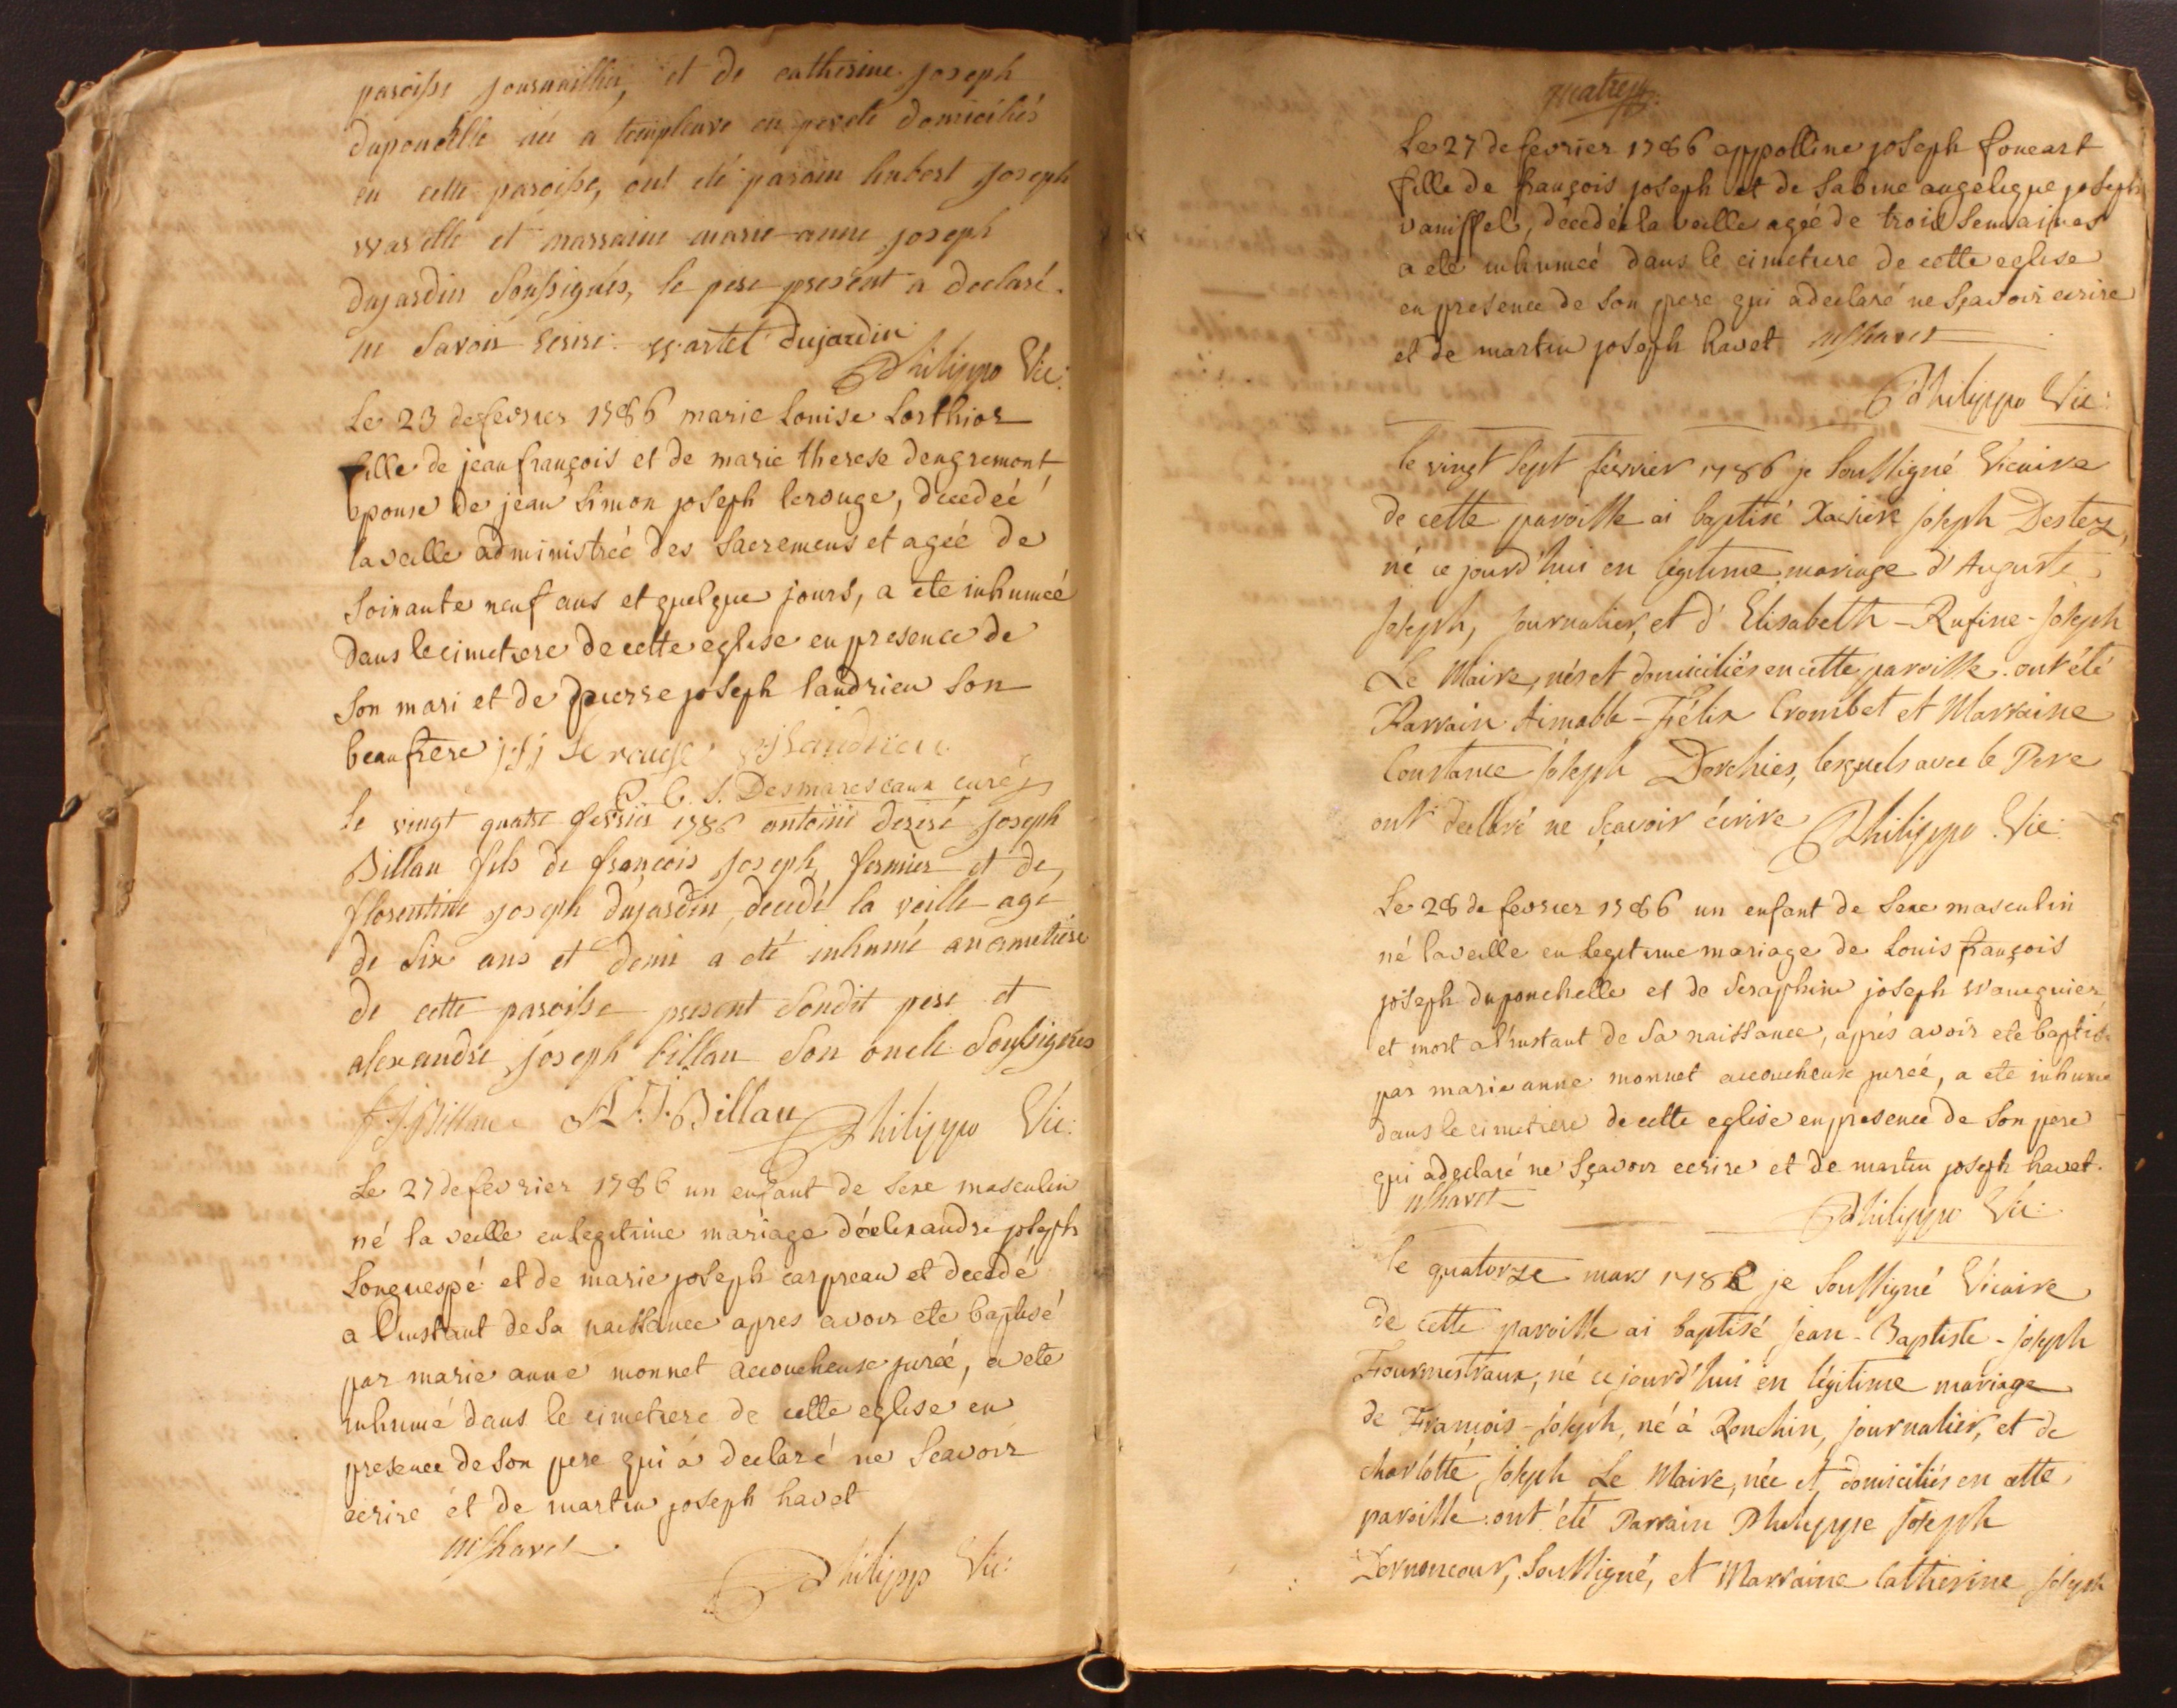 paroisse journaillier, et de catherine joseph
duponchelle née a templeuve en pevele domiciliés
en cette paroisse, ont été parain hubert joseph
wartelle et marraine marie-anne joseph
dujardin soussignés, le pere present a declaré
ne savoir ecrire. wartel dujardin
Philippo Vic:
Le 23 de fevrier 1786 marie Louise Lorthior
fille de jean françois et de marie therese dengremont
epouse de jean simon joseph lerouge, decedeé
la veille administreé des sacremens et ageé de
soixante neuf ans et quelque jours, a ete inhumeé
dans le cimetiere de cette eglise en presence de
son mari et de pierre joseph landrieu son
beaufrere j s j Le rouge p j Landrieu
P. C. J. Desmarescaux curé
le vingt quatre fevrier 1786 antoine deziré joseph
Billau fils de françois joseph, fermier et de
florentine joseph dujardin, decedé la veille agé
de six ans et demi a eté inhumé au cimetiere
de cette paroisse present sondit pere et
alexandre joseph billau son oncle soussignés
f j Billau A. F. J. Billau Philippo Vic:
Le 27 de fevrier 1786 un enfant de sexe masculin
né la veille en legitime mariage d'alexandre joseph
Longuespé et de marie joseph carpreau et decedé
a l'instant de sa naissance apres avoir ete baptisé
par marie anne monnet accoucheuse jureé, a ete
inhumé dans le cimetiere de cette eglise en
presence de son pere qui a declaré ne sçavoir
ecrire et de martin joseph havet
mjhavet
Philippo Vic:
quatre
Le 27 de fevrier 1786 appolline joseph foucart
fille de françois joseph et de sabine angelique joseph
vaniffel, decedeé la veille ageé de trois semaines
a ete inhumeé dans le cimetiere de cette eglise
en presence de son pere qui a declaré ne sçavoir ecrire
et de martin joseph havet mjhavet
Philippo Vic:
le vingt sept fevrier 1786 je soussigné Vicaire
de cette paroisse ai baptisé Xavier joseph Desterz,
né ce jourd'hui en legitime mariage d'Auguste
joseph, journalier, et d'Elisabeth-Rufine-joseph
Le Maire, nés et domiciliés en cette paroisse. ont été
Parrain Aimable-Félix Crombet et Marraine
Constance joseph Dorchies, lesquels avec le Pere
ont declaré ne sçavoir écrire Philippo Vic:
Le 28 de fevrier 1786 un enfant de sexe masculin
né la veille en legitime mariage de Louis françois
joseph duponchelle et de seraphine joseph wauquier,
et mort a l'instant de sa naissance, aprés avoir ete baptisé
par marie anne monnet accoucheuse jureé, a ete inhumé
dans le cimetiere de cette eglise en presence de son pere
qui a declaré ne sçavoir ecrire et de martin joseph havet.
mjhavet
Philippo Vic:
le quatorze mars 1786 je soussigné Vicaire
de cette paroisse ai baptisé jean-Baptiste-joseph
Fourmestraux, né ce jourd'hui en légitime mariage
de François-joseph, né à Ronchin, journalier, et de
charlotte joseph Le Maire, née et domiciliés en cette
paroisse. ont été Parrain Philippe joseph
Dernoncour, soussigné, et Marraine Catherine joseph